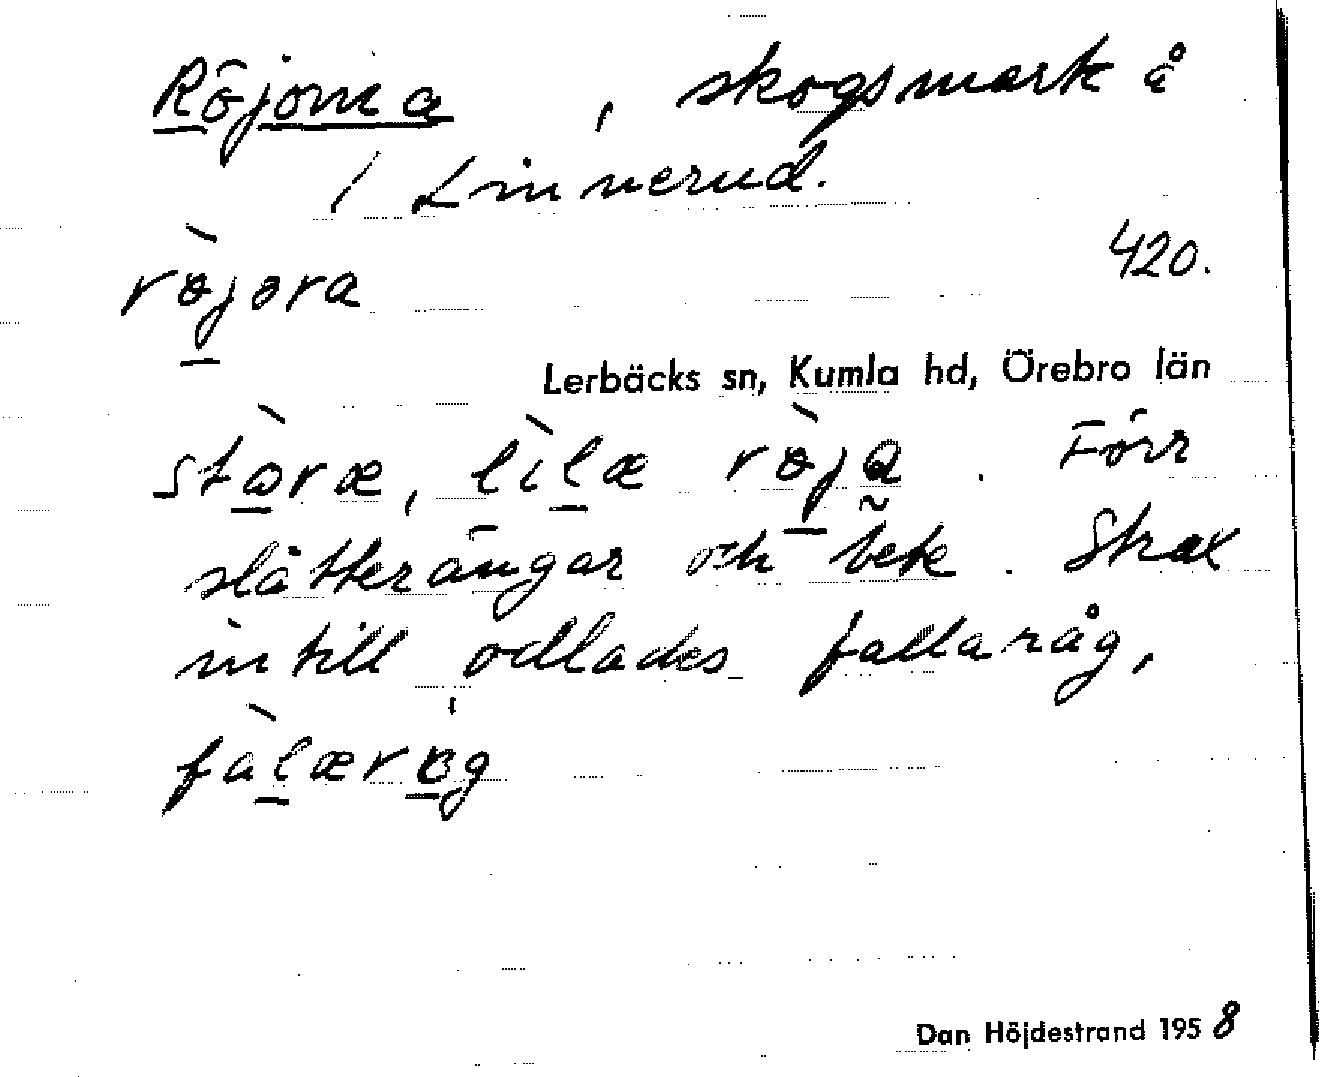 Röjorna, skogsmark å
/ Linnerud.
röjora
420.
Lerbäcks sn, Kumla hd, Örebro län
storæ, lilæ röja. Förr
slåtterängar och bete. Strax
intill odlades fallaråg,
falærog
Dan Höjdestrand 1958